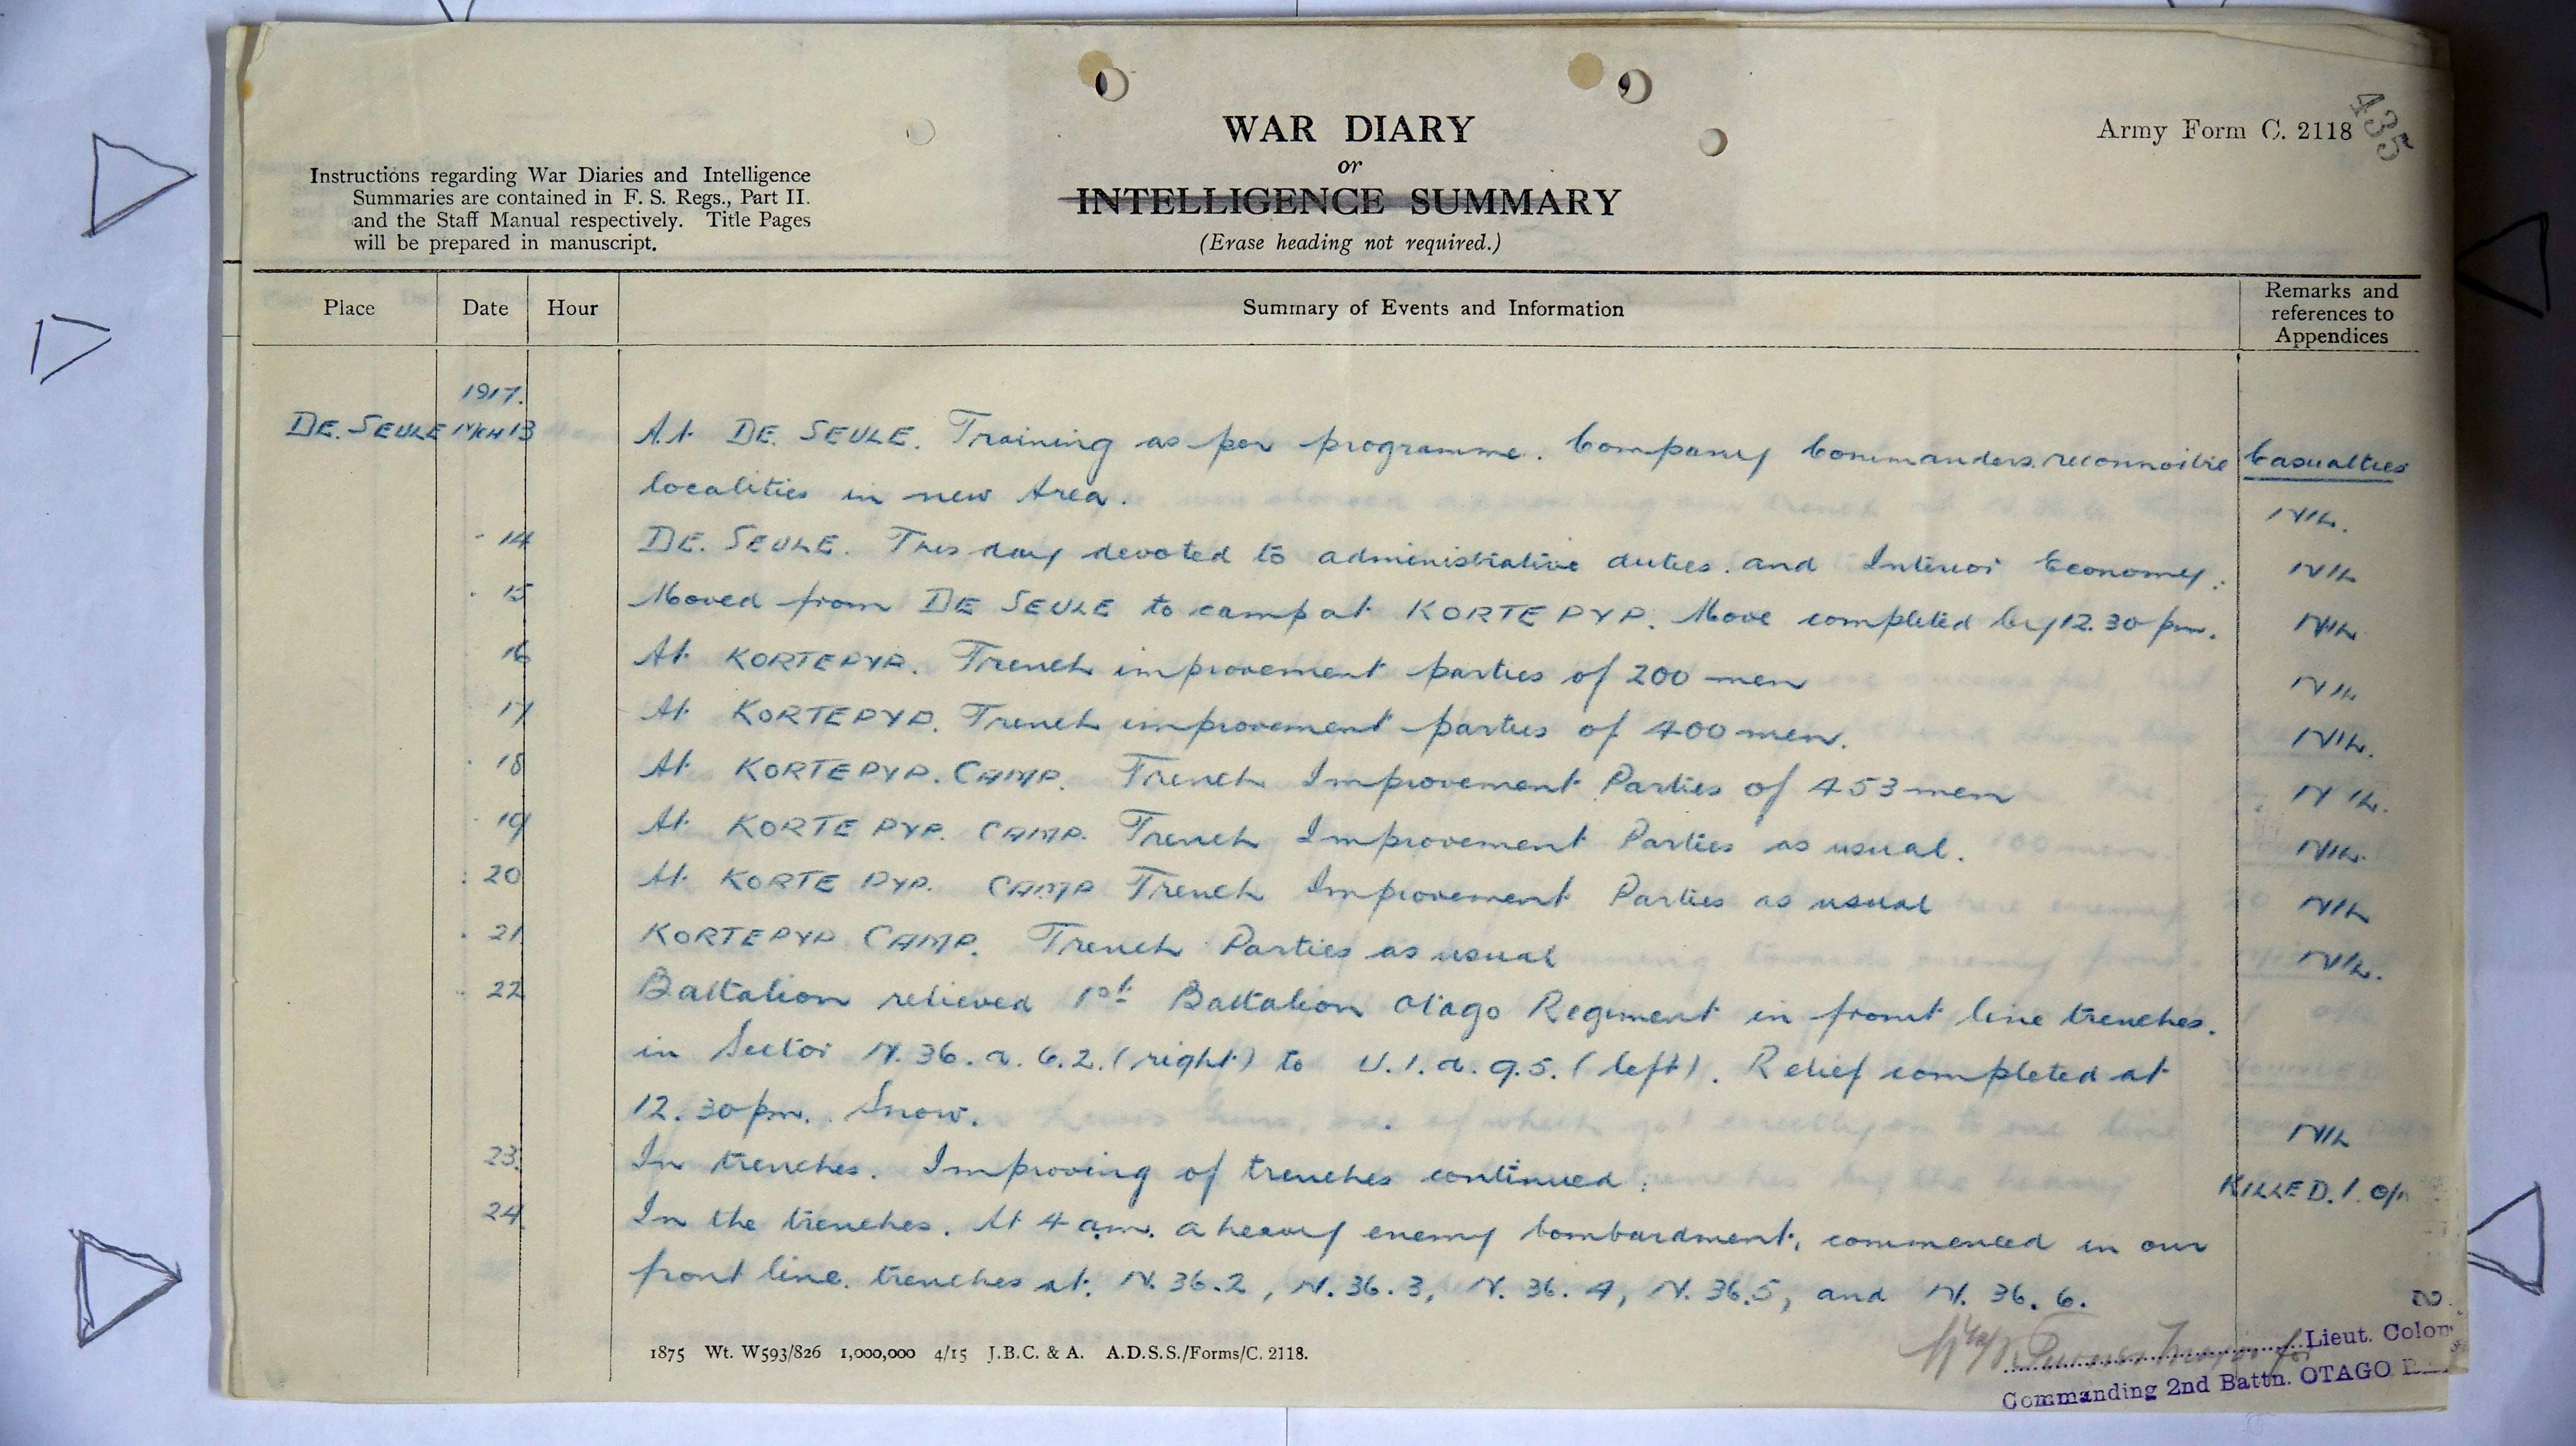 435
WAR DIARY
or
INTELLIGENCE SUMMARY
(Erase heading not required.)
Army Form C. 2118
Instructions regarding War Diaries and Intelligence
Summaries are contained in F. S. Regs., Part II.
and the Staff Manual respectively. Title Pages
will be prepared in manuscript.
Place Date Hour Summary of Events and Information Remarks and
references to
Appendices
1917.
DE. SEULE MCH 13 At DE. SEULE. Training as per programme. Company Commanders reconnoitre Casualties
localities in new Area. NIL.
14 DE. SEULE. This day devoted to administrative duties. and Interior Economy. NIL
15 Moved from DE SEULE to camp at KORTE PYP. Move completed by 12.30 pm. NIL
16 At KORTEPYP. Trench improvement parties of 200 men NIL
17 At KORTEPYP. Trench improvement parties of 400 men. NIL.
18 At KORTEPYP. CAMP. Trench Improvement Parties of 453 men NIL.
19 At KORTE PYP. CAMP. Trench Improvement Parties as usual. NIL.
20 At KORTE PYP. CAMP Trench Improvement Parties as usual NIL
21 KORTEPYP CAMP. Trench Parties as usual NIL.
22 Battalion relieved 1st Battalion Otago Regiment in front line trenches.
in Sector N. 36. a. 6.2. (right) to U.1.a. 9.5. (left). Relief completed at
12.30 pm. Snow. NIL
23. In trenches. Improving of trenches continued. KILLED. 1. O/R
24 In the trenches. At 4 am. a heavy enemy bombardment, commenced in our
front line. trenches at. N. 36.2, N. 36.3, N. 36.4, N. 36.5, and N. 36.6.
1875 Wt. W593/826 1,000,000 4/15 J.B.C. & A. A.D.S.S./Forms/C. 2118.
Major for Lieut. Colon
Commanding 2nd Battn. OTAGO